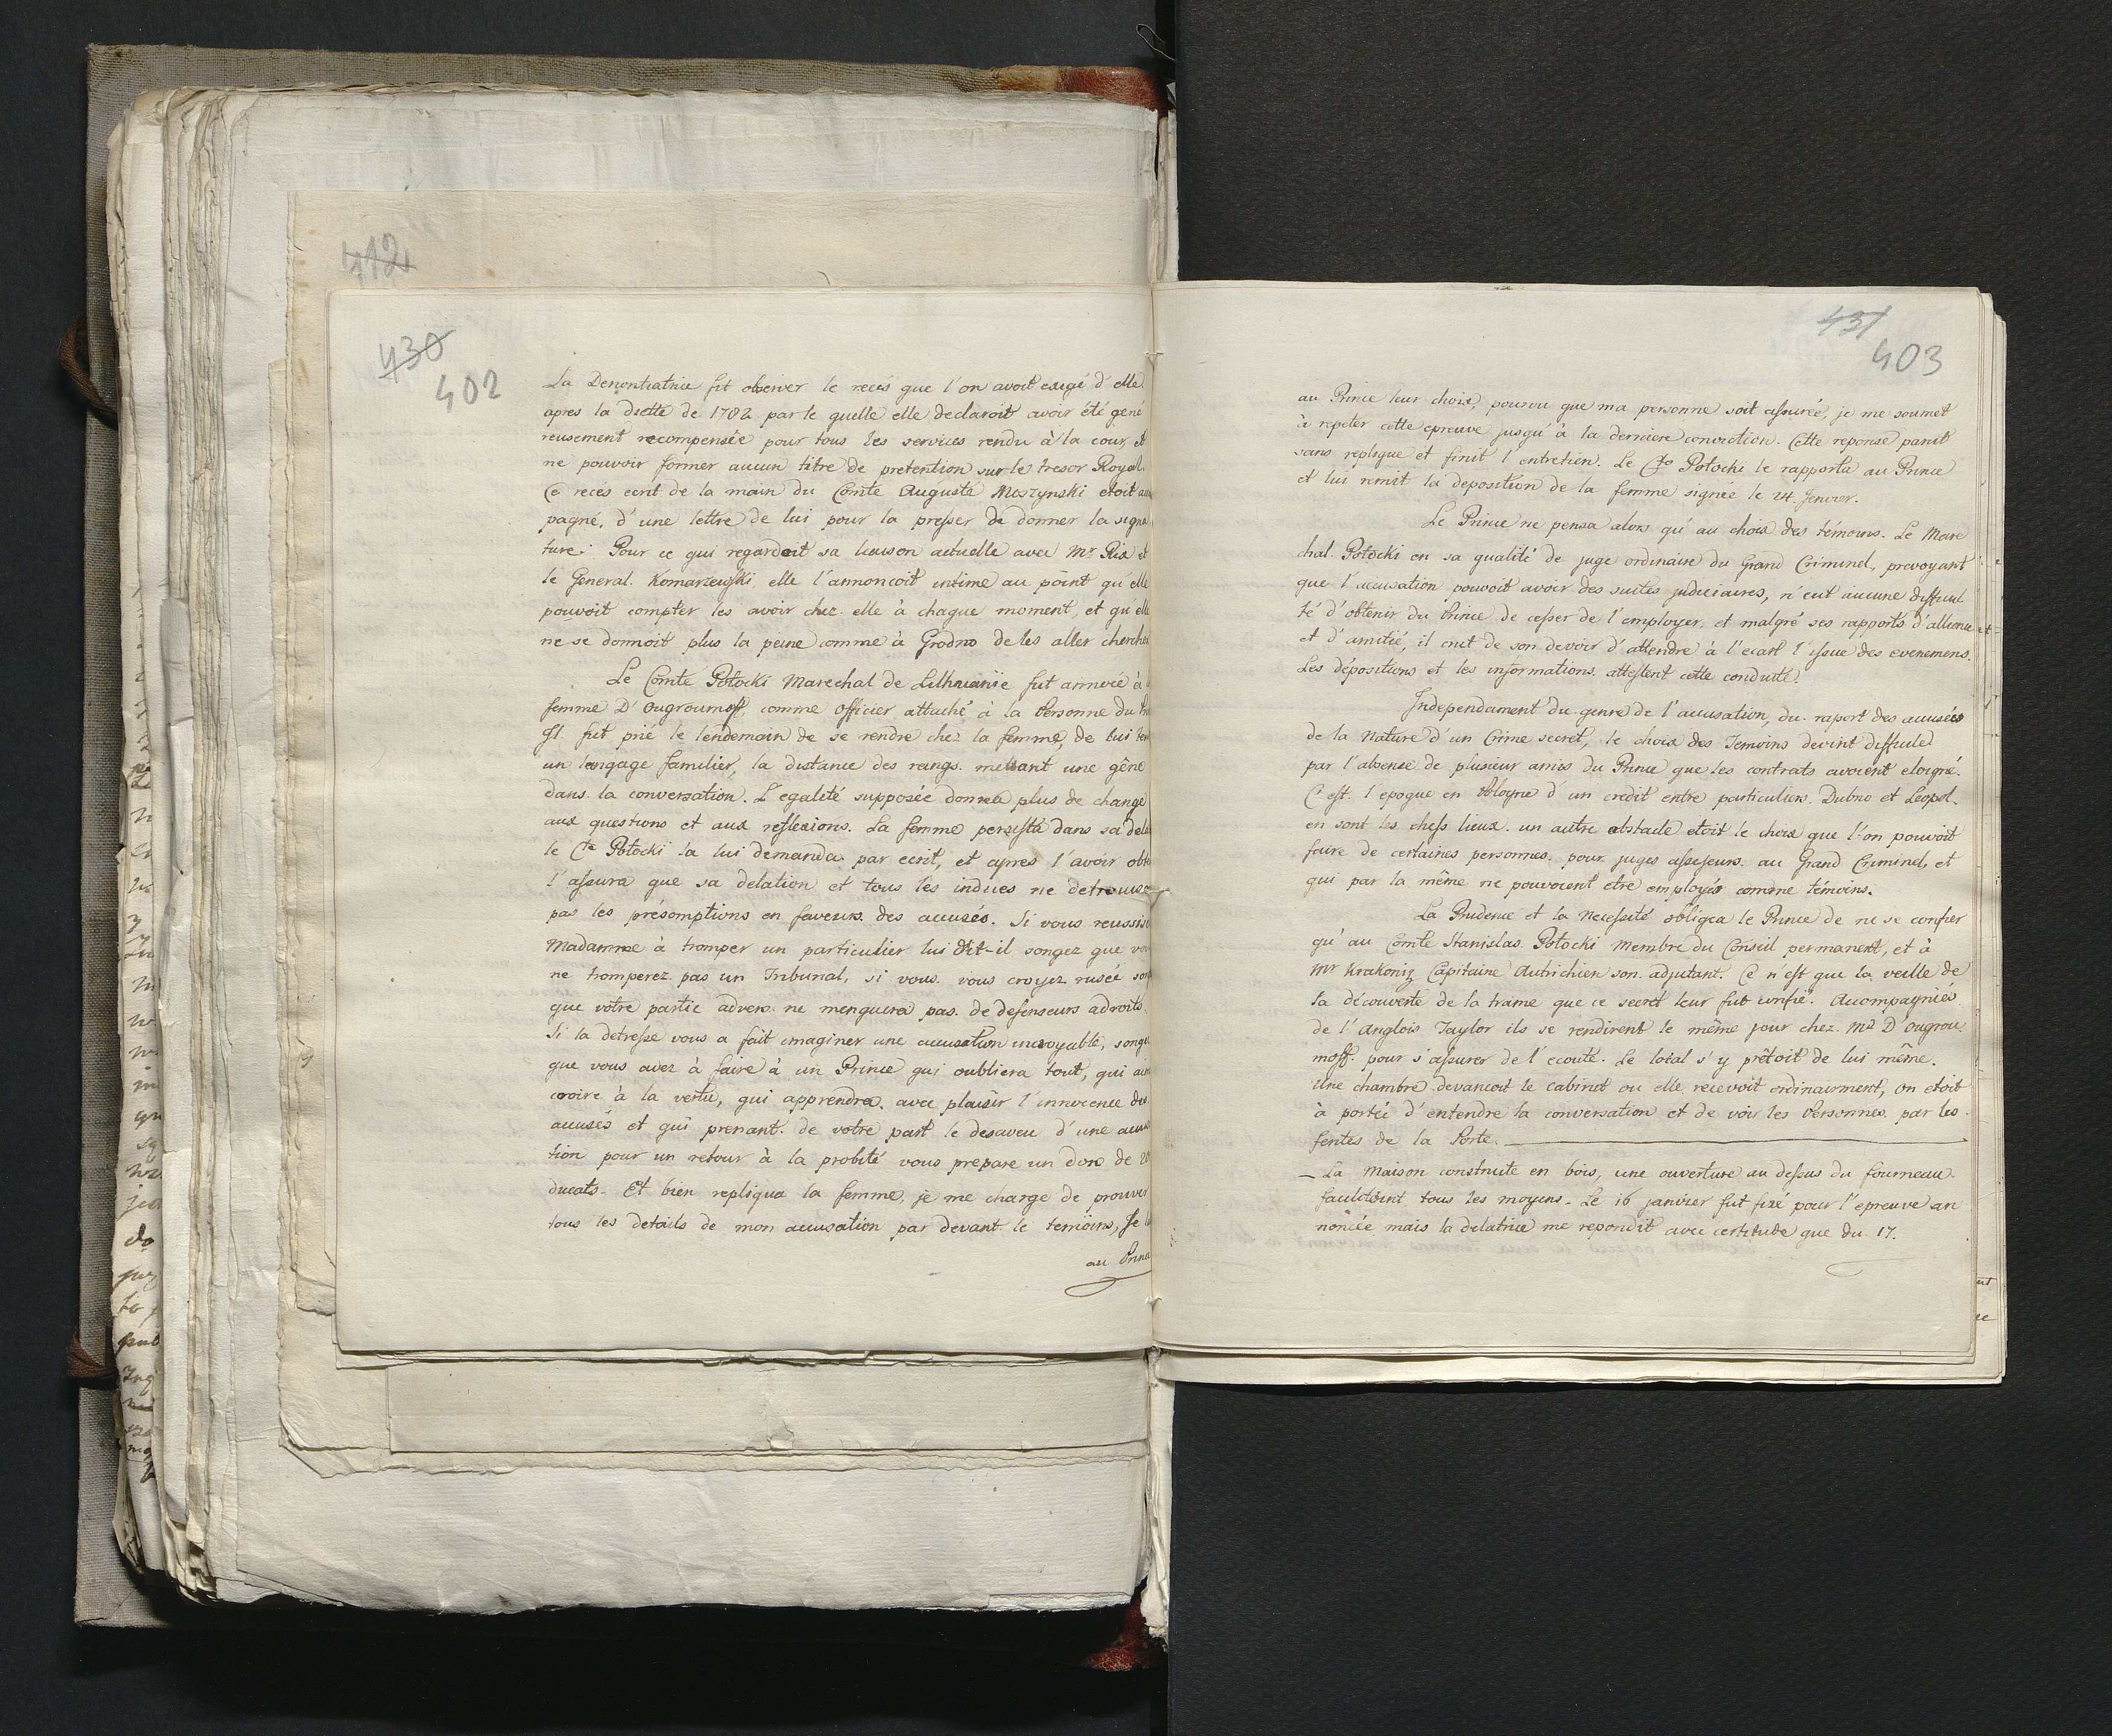 412
430
402
La Denontiatrice fit observer le recés que l'on avoit exigé d'elle
apres la diette de 1782 par le quelle elle declaroit avoir été gené
reusement recompensée pour tous les services rendu à la cour, et
ne pouvoir former aucun titre de pretention sur le tresor Royal.
Ce recés ecrit de la main du Comte Auguste Moszynski etoit
pagné, d'une lettre de lui pour la presser de donner la signa
ture. Pour ce qui regardoit sa liaison actuelle avec Mr Rix et
le General Komarzewski, elle l'annoncoit intime au point qu'elle
pouvoit compter les avoir chez elle à chaque moment, et qu'elle
ne se donnoit plus la peine comme à Grodno de les aller chercher
Le Comte Potocki Marechal de Lithuanie fut annoncé à
femme D'Ougroumoff, comme officier attaché à la Personne du
Il fut prié le lendemain de se rendre chez la femme, de lui
un langage familier, la distance des rangs mettant une gêne
dans la conversation. L'egalité supposée donna plus de change
aux questions et aux reflexions. La femme persista dans sa
le Cte Potocki la lui demanda par ecrit, et apres l'avoir
l'assura que sa delation et tous les indices ne
pas les présomptions en faveurs des accusés. Si vous
Madamme à tromper un particulier lui dit-il songez que
ne tromperez pas un Tribunal, si vous vous croyez rusée
que votre partie advers ne menquera pas de defenseurs adroits.
Si la detresse vous a fait imaginer une accusation incroyable,
que vous avez à faire à un Prince qui oubliera tout, qui
croire à la vertu, qui apprendra avec plaisir l'innocence des
accusés et qui prenant de votre part le desaveu d'une
tion pour un retour à la probité vous prepare un don de
ducats. Et bien repliqua la femme, je me charge de prouver
tous les details de mon accusation par devant le temoins, Je
au Prince
431
403
au Prince leur choix, pourvu que ma personne soit assurée, je me soumet
à repeter cette epreuve jusqu'à la derniere conviction. Cette reponse parut
sans replique et finit l'entretien. Le Cte Potocki le rapporta au Prince
et lui remit la deposition de la femme signée le 24. Jenvier.
Le Prince ne pensa alors qu'au choix des témoins. Le Mare
chal Potocki en sa qualité de juge ordinaire du Grand Criminel, prevoyant
que l'accusation pouvoit avoir des suites judiciaires, n'eut aucune difficul
té d'obtenir du Prince de cesser de l'employer, et malgré ses rapports d'alliance
et d'amitié, il crut de son devoir d'attendre à l'ecart l'issue des evenemens.
Les dépositions et les informations attestent cette conduite.
Independament du genre de l'accusation, du raport des accusés
de la Nature d'un Crime secret, le choix des Temoins devint difficile
par l'absense de plusieur amis du Prince que les contrats avoient eloigné.
C'est l'epoque en Pologne d'un credit entre particuliers. Dubno et Leopol.
en sont les chefs lieux. un autre obstacle etoit le choix que l'on pouvoit
faire de certaines personnes pour juges assesseurs au Grand Criminel, et
qui par la même ne pouvoient etre employés comme témoins.
La Prudence et la necessité obligea le Prince de ne se confier
qu'au Comte Stanislas Potocki membre du Conseil permanent, et à
Mr Krakoniz Capitaine Autrichien son adjutant. Ce n'est que la veille de
la découverte de la trame que ce secret leur fut confié. Accompagniés
de l'Anglois Taylor ils se rendirent le même jour chez Me D'ougrou
moff. pour s'assurer de l'ecoute. Le local s'y prêtoit de lui même.
Une chambre devancoit le cabinet ou elle recevoit ordinairment, on etoit
à portée d'entendre la conversation et de voir les Personnes par les
fentes de la Porte.
La Maison construite en bois, une ouverture au dessus du fourneau
facilitoient tous les moyens. Le 16 janvier fut fixé pour l'epreuve an
noncée mais la delatrice me repondit avec certitude que du 17.